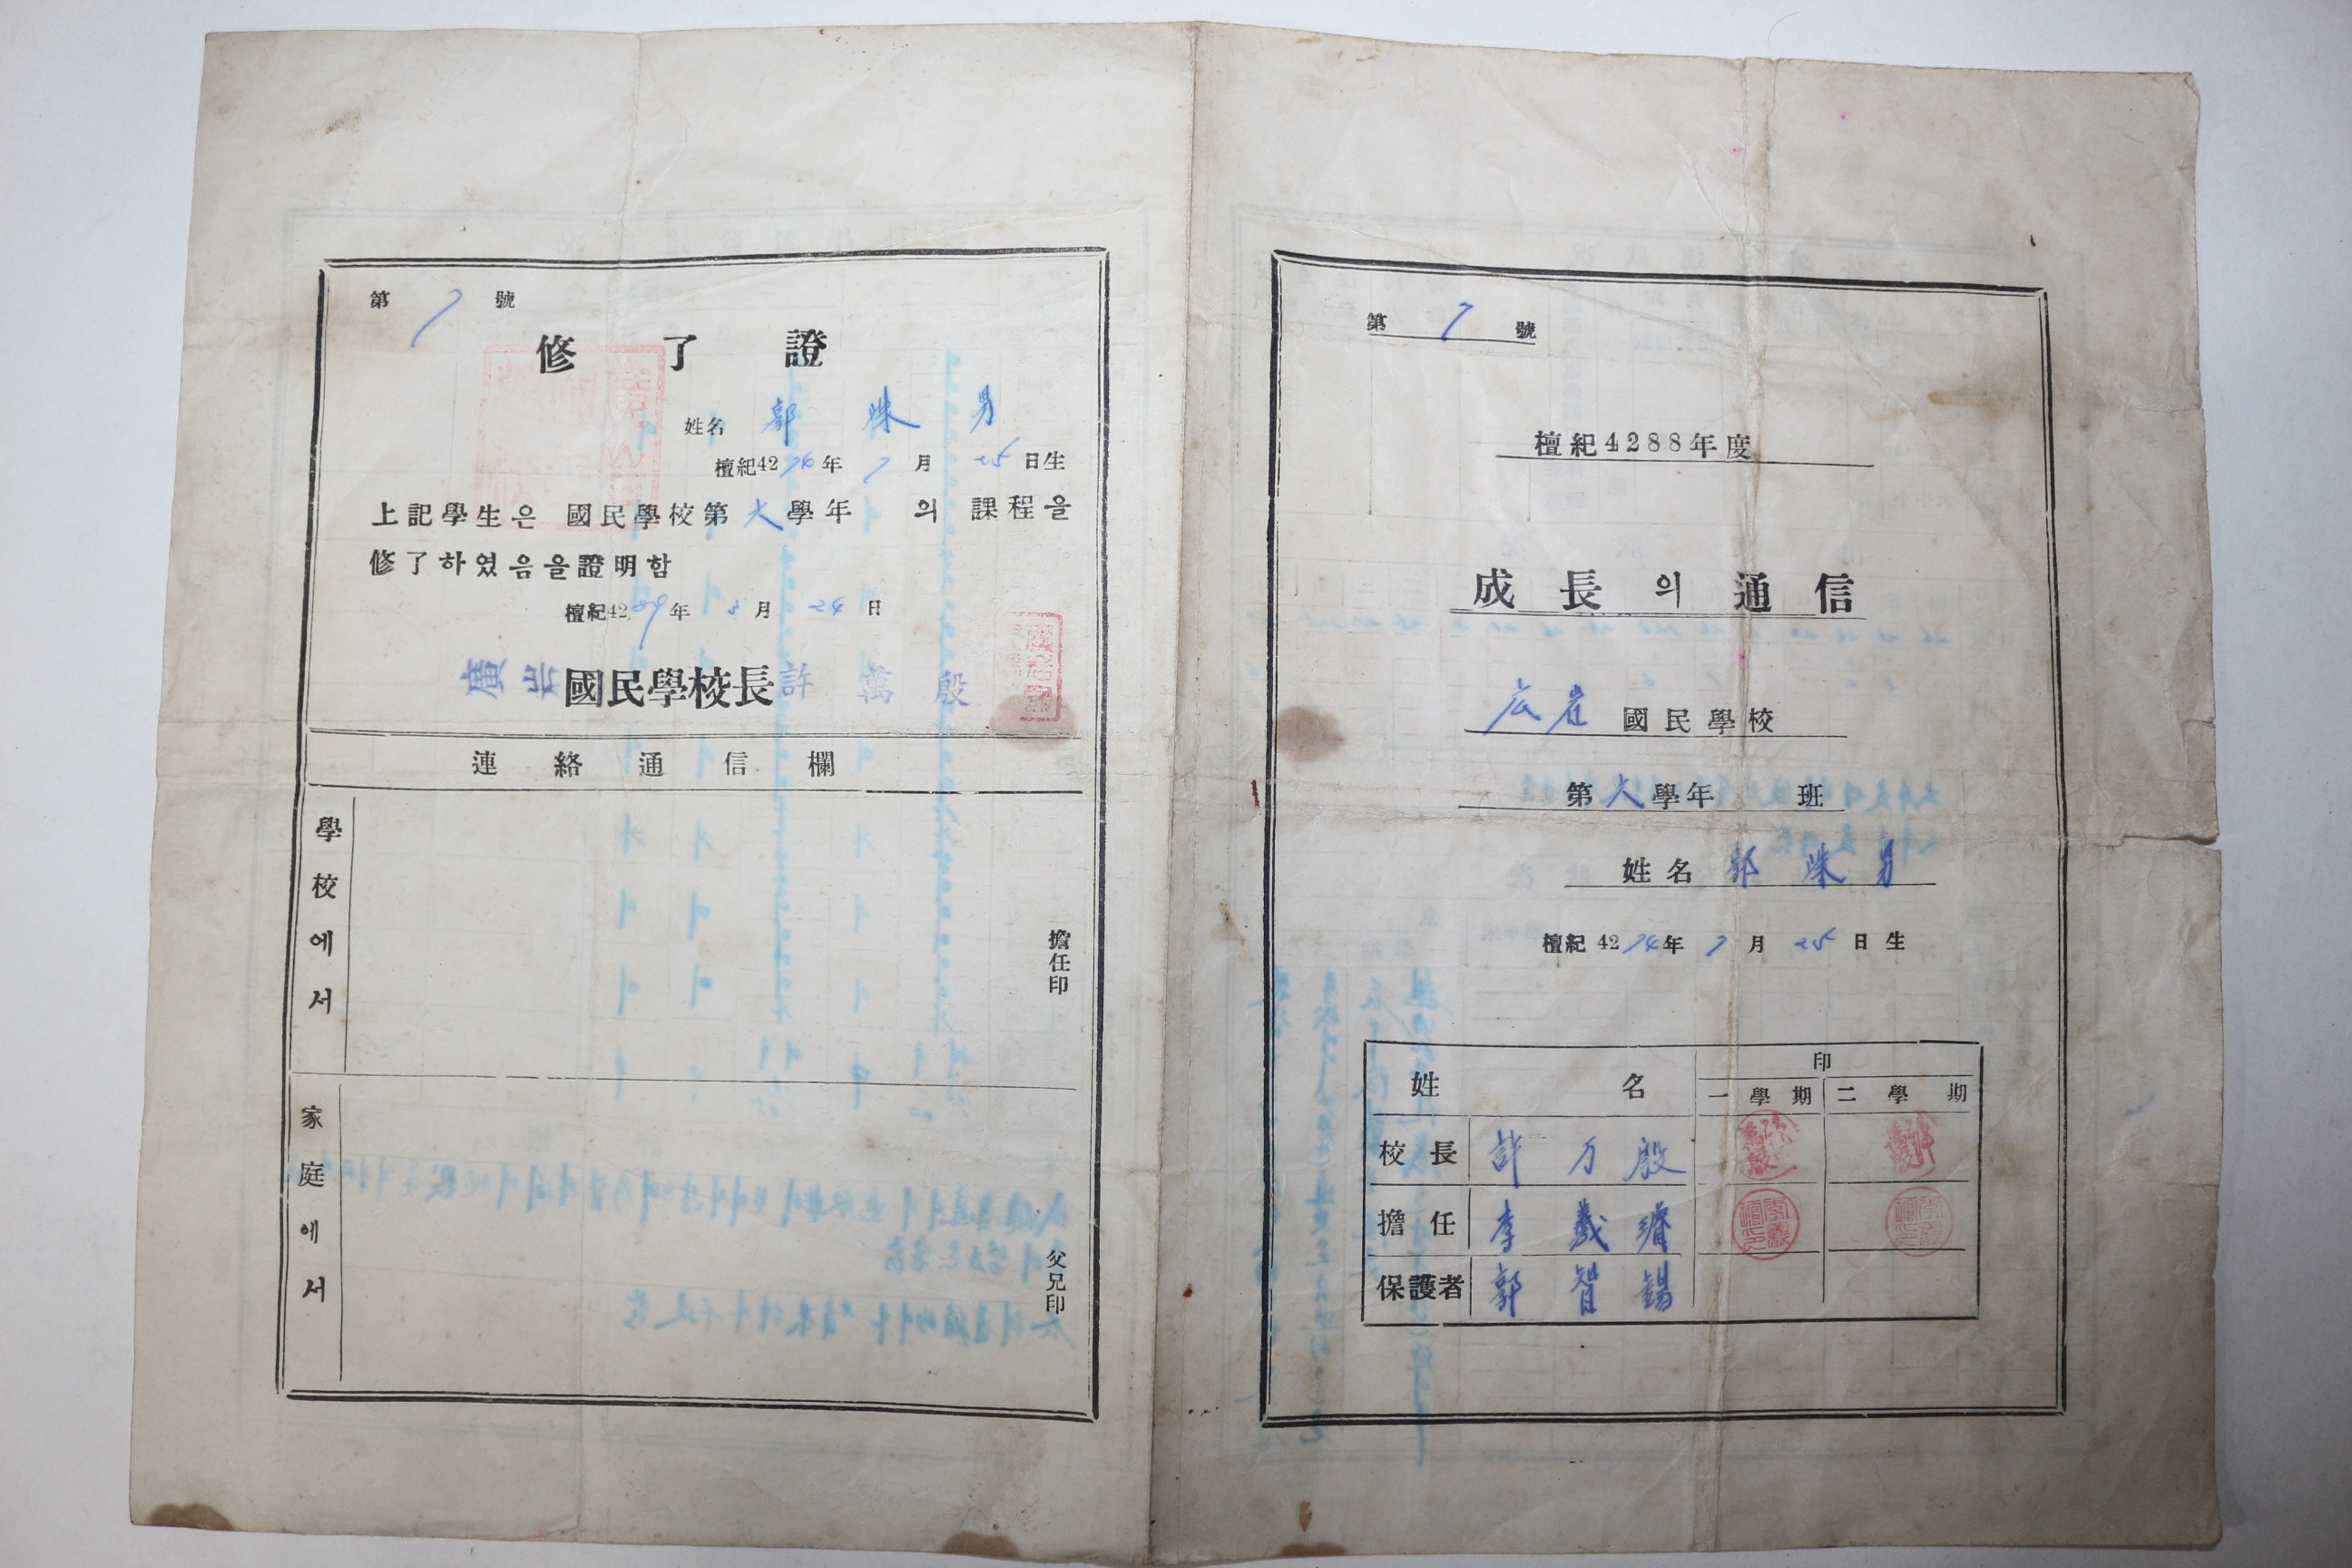 第 7 號
修了證
姓名 郭 珠 男
檀紀4274年 7月 25日生
上記學生은 國民學校第六學年의 課程을
修了하였음을證明함
檀紀4289年 3月 24日
廣岩國民學校長 許萬殷
連絡通信欄
學校에서
擔任印
家庭에서
父兄印
第 7 號
檀紀4288年度
成長의通信
広岩 國民學校
第六學年 班
姓名 郭 珠 男
檀紀 4274年 7月 25日生
姓名 印
一學期 二學期
校長 許万殷
擔任 李義璿
保護者 郭智錫